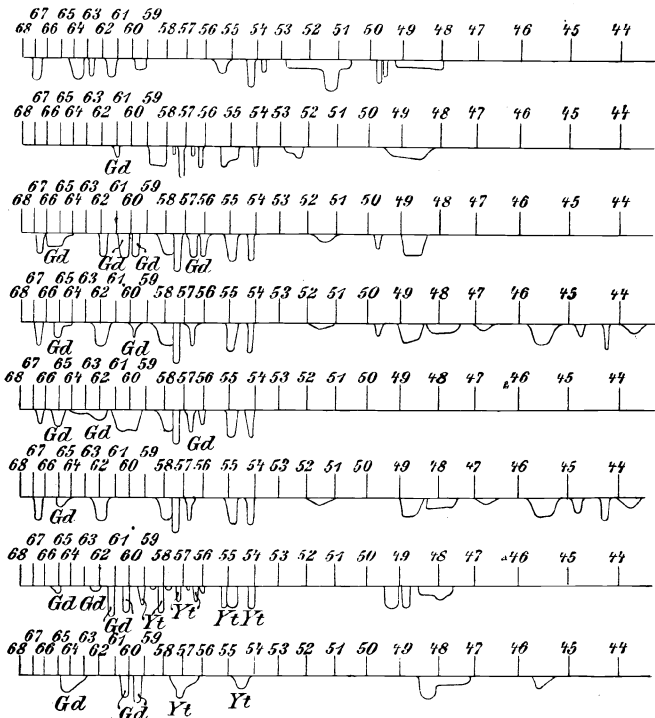 67 65 63 61 59
68 66 64 62 60 58 57 56 55 54 53 52 51 50 49 48 47 46 45 44
67 65 63 61 59
68 66 64 62 60 58 57 56 55 54 53 52 51 50 49 48 47 46 45 44
Gd
67 65 63 61 59
68 66 64 62 60 58 57 56 55 54 53 52 51 50 49 48 47 46 45 44
Gd Gd Gd Gd
67 65 63 61 59
68 66 64 62 60 58 57 56 55 54 53 52 51 50 49 48 47 46 45 44
Gd Gd
67 65 63 61 59
68 66 64 62 60 58 57 56 55 54 53 52 51 50 49 48 47 46 45 44
Gd Gd Gd
67 65 63 61 59
68 66 64 62 60 58 57 56 55 54 53 52 51 50 49 48 47 46 45 44
Gd
67 65 63 61 59
68 66 64 62 60 58 57 56 55 54 53 52 51 50 49 48 47 46 45 44
Gd Gd Gd Yt Yt Yt Yt
67 65 63 61 59
68 66 64 62 60 58 57 56 55 54 53 52 51 50 49 48 47 46 45 44
Gd Gd Yt Yt